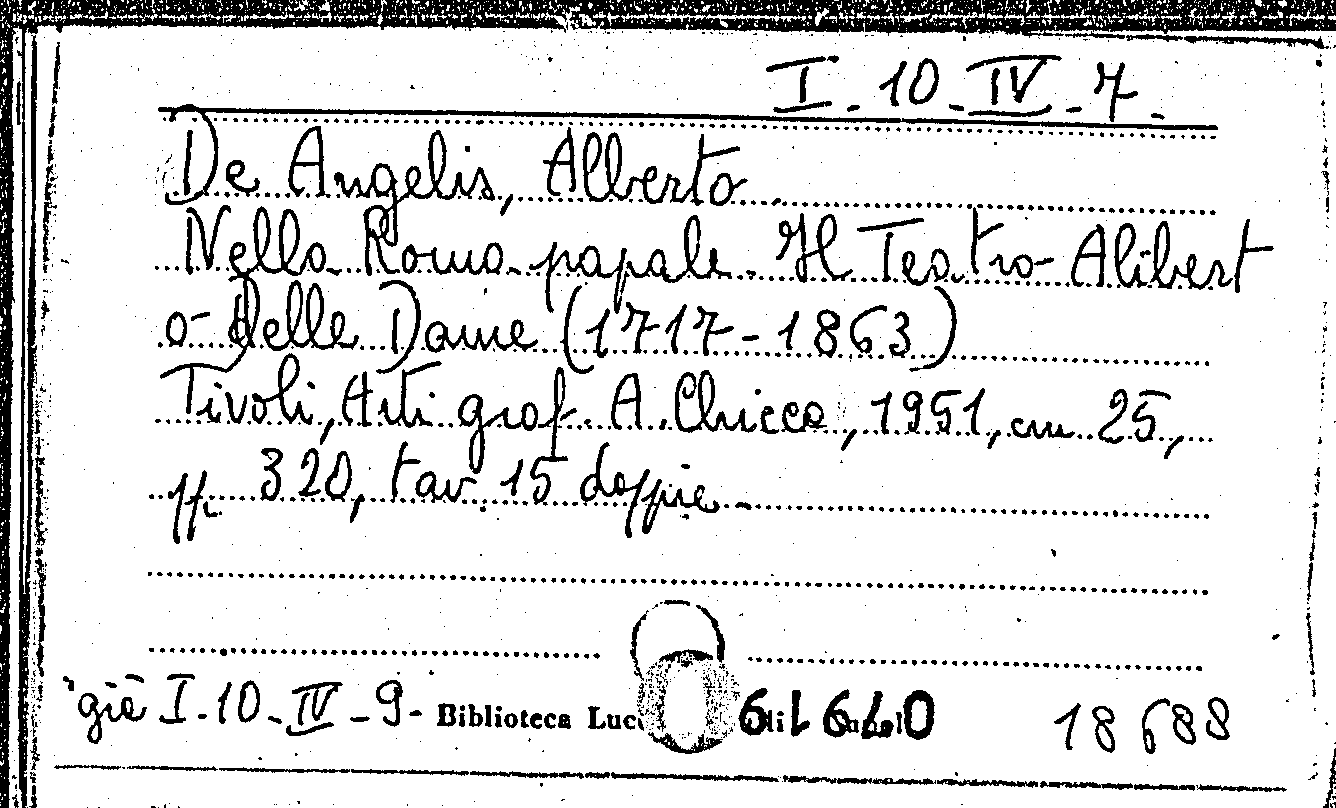 I-10-IV-7-
De Angelis, Alberto
Nella Roma papale. Il Teatro Alibert
o delle Dame (1717-1863)
Tivoli, Arti graf. A. Chicca, 1951, cm 25,
pp. 320, tav 15 doppie-
già I-10-IV-9- Biblioteca 18688